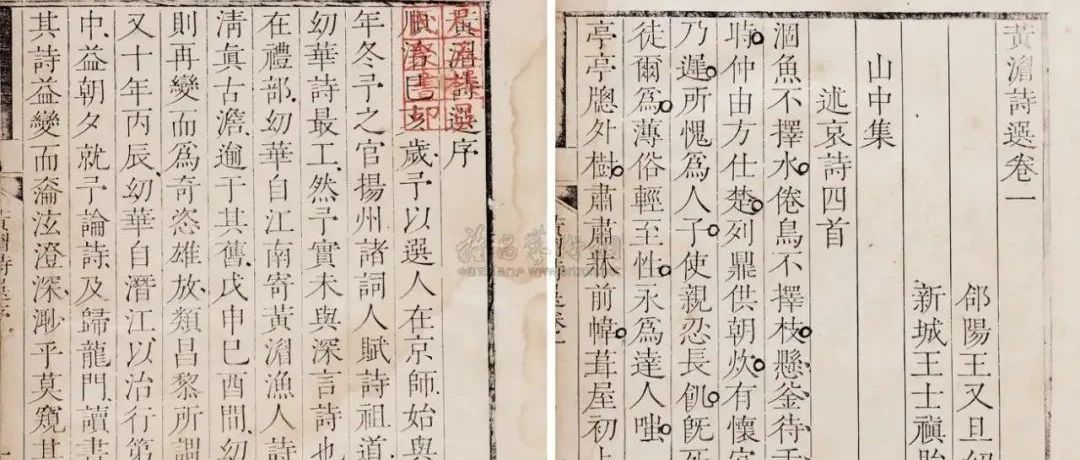 黃湄詩選序
順治己亥歲予以選人在京師始與
年冬予之官揚州諸詞人賦詩祖道
幼華詩最工然予實未與深言詩也
在禮部幼華自江南寄黃湄漁人詩
淸眞古澹逈于其舊戊申己酉間幼
則再變而爲奇恣雄放類昌黎所謂
又十年丙辰幼華自潛江以治行第
中益朝夕就予論詩及歸龍門讀書
其詩益變而蘥泫澄深渺乎莫窺其
黃湄詩選卷一
郃陽王又旦幼
新城王士禛貽
山中集
述哀詩四首
涸魚不擇水倦鳥不擇枝懸釜待
時仲由方仕楚列鼎供朝炊有懷
乃遲所愧爲人子使親忍長飢旣死
徒爾爲薄俗輕至性永爲達人嗤
亭亭牕外樹肅肅牀前幃葺屋初